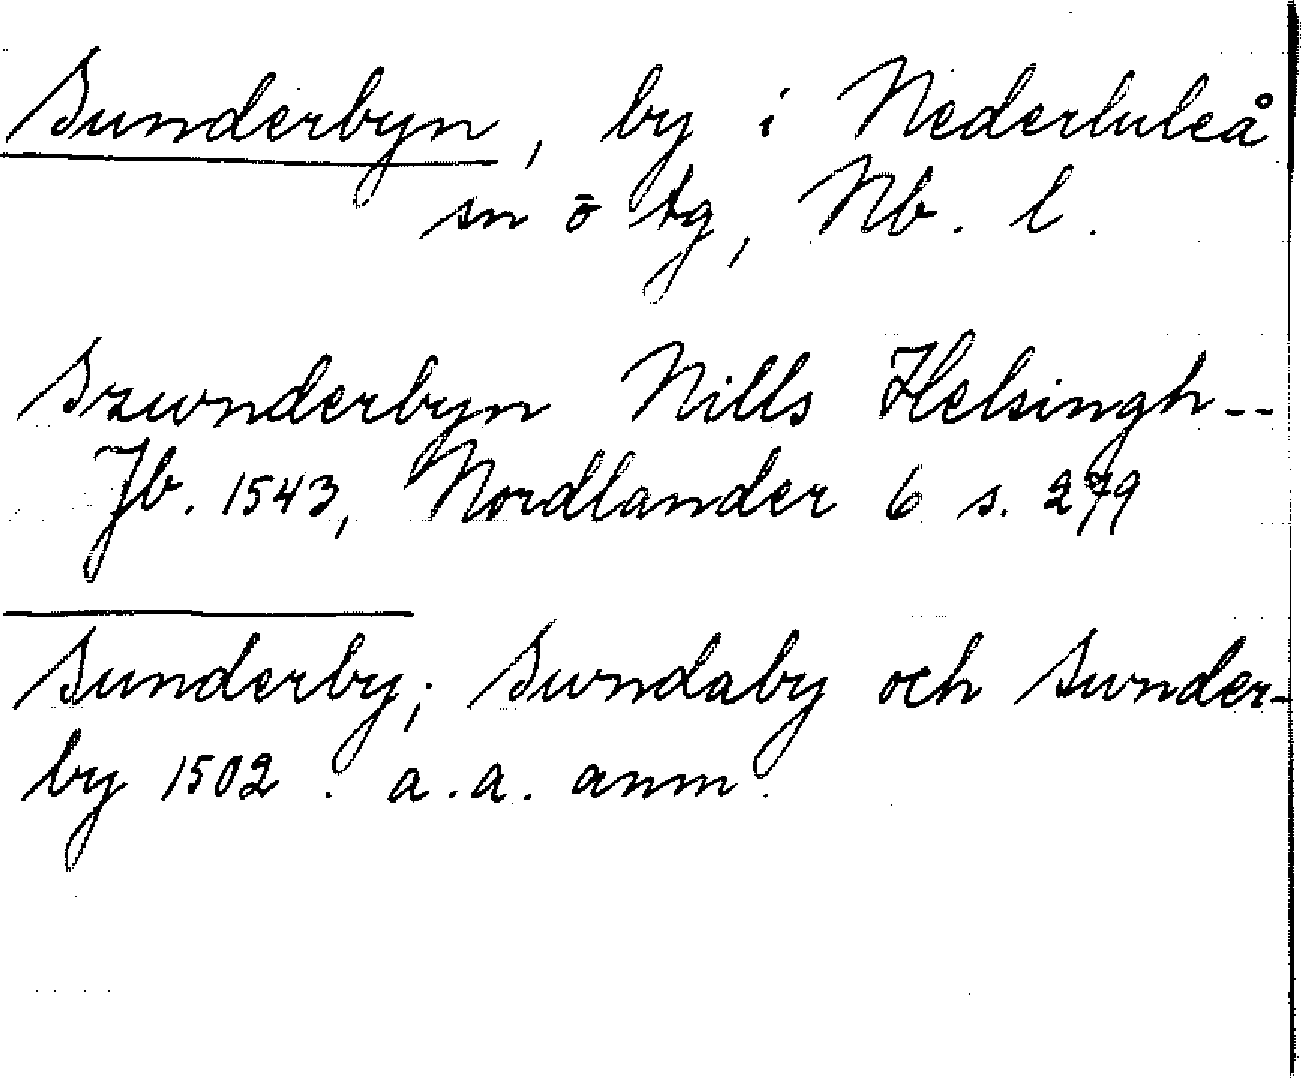 Sunderbyn, by i Nederluleå
sn ö tg, Nb. l.
Szunderbyn Nills Helsingh--
Jb. 1543, Nordlander 6 s. 279
Sunderby; Sundaby och Sunder-
by 1502. a.a. anm.